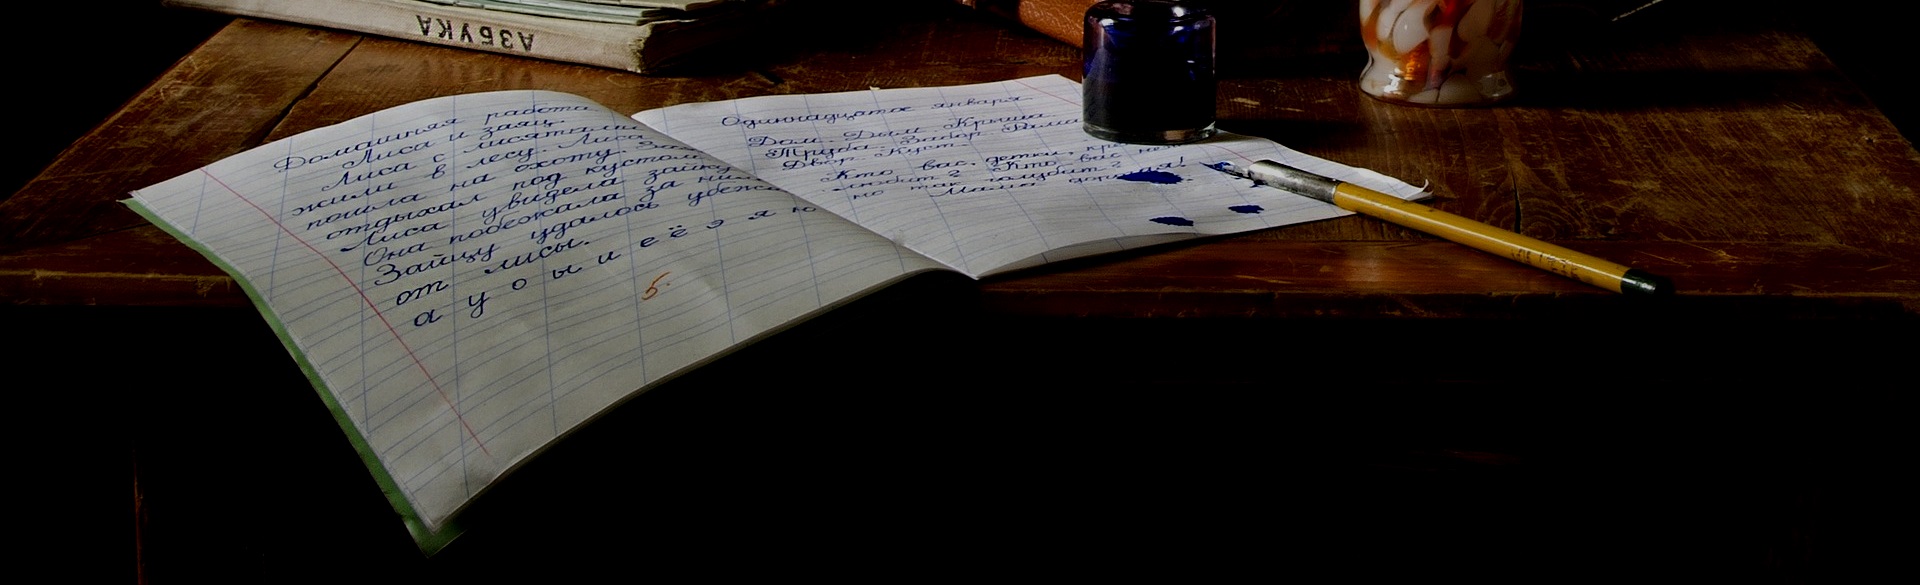 АЗБУКА
Домашняя работа
Лиса и заяц.
Лиса с лисятами
жили в лесу. Лиса
пошла на охоту.
отдыхал под кустом.
Лиса увидела зайку
Она побежала за ним
Зайцу удалось
от лисы.
а у о ы и е ё э я ю
5.
Одиннадцатое января
Дом. Дым. Крыша.
Труба. Забор. Рама.
Двор. Куст.
Кто вас, детки,
любит? Кто вас
но так голубит?
Мама